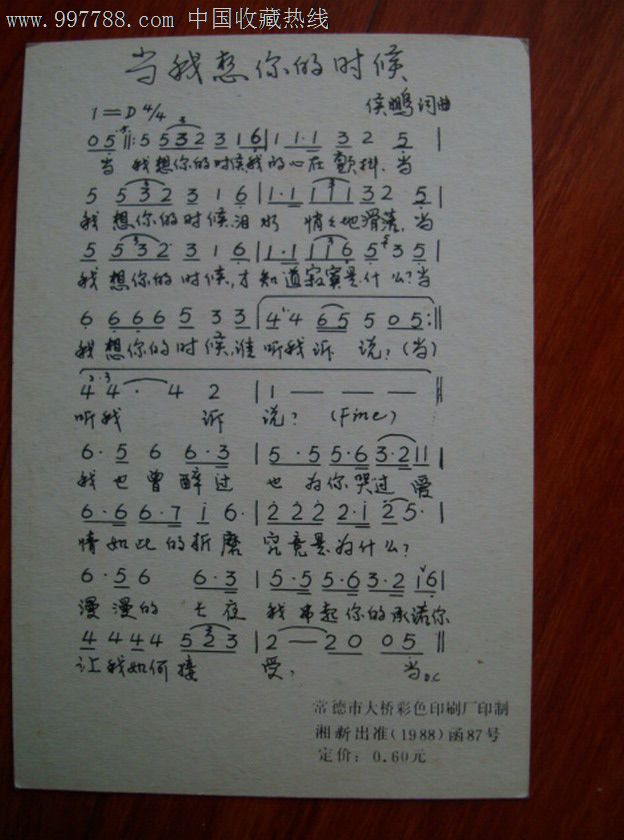 www.997788.com 中国收藏热线
当我想你的时候
1=D 4/4
侯鹏词曲
0 5 ‖: 5 5 3 2 3 1 6 | 1 1·1 3 2 5 |
当 我想你的时侯我的心在颤抖,当
5 5 3 2 3 1 6 | 1·1 1 1 1 3 2 5 |
我想你的时侯,泪水 悄々地滑落,当
5 5 3 2 3 1 6 | 1·1 1 1 6 5 3 5 |
我想你的时候,才知道寂寞是什么?当
6 6 6 6 5 3 3 | 4 4 6 5 5 0 5 :‖
我想你的时候,谁听我诉说?(当)
4 4· 4 2 | 1 — — — ‖
听我 诉 说? (Fine)
6·5 6 6·3 | 5·5 5·6 3·2 1 1 |
我也曾醉过 也为你哭过 爱
6·6 6·7 i 6· | 2 2 2 2·i 2 5· |
情如此的折磨 究竟是为什么?
6·5 6 6·3 | 5·5 5·6 3·2 i 6 |
漫漫的长夜 我 起你的承诺你
4 4 4 4 5 2 3 | 2 — 2 0 0 5 ‖
让我如何接 受, 当D.C
常德市大桥彩色印刷厂印制
湘新出准(1988)函87号
定价:0.60元